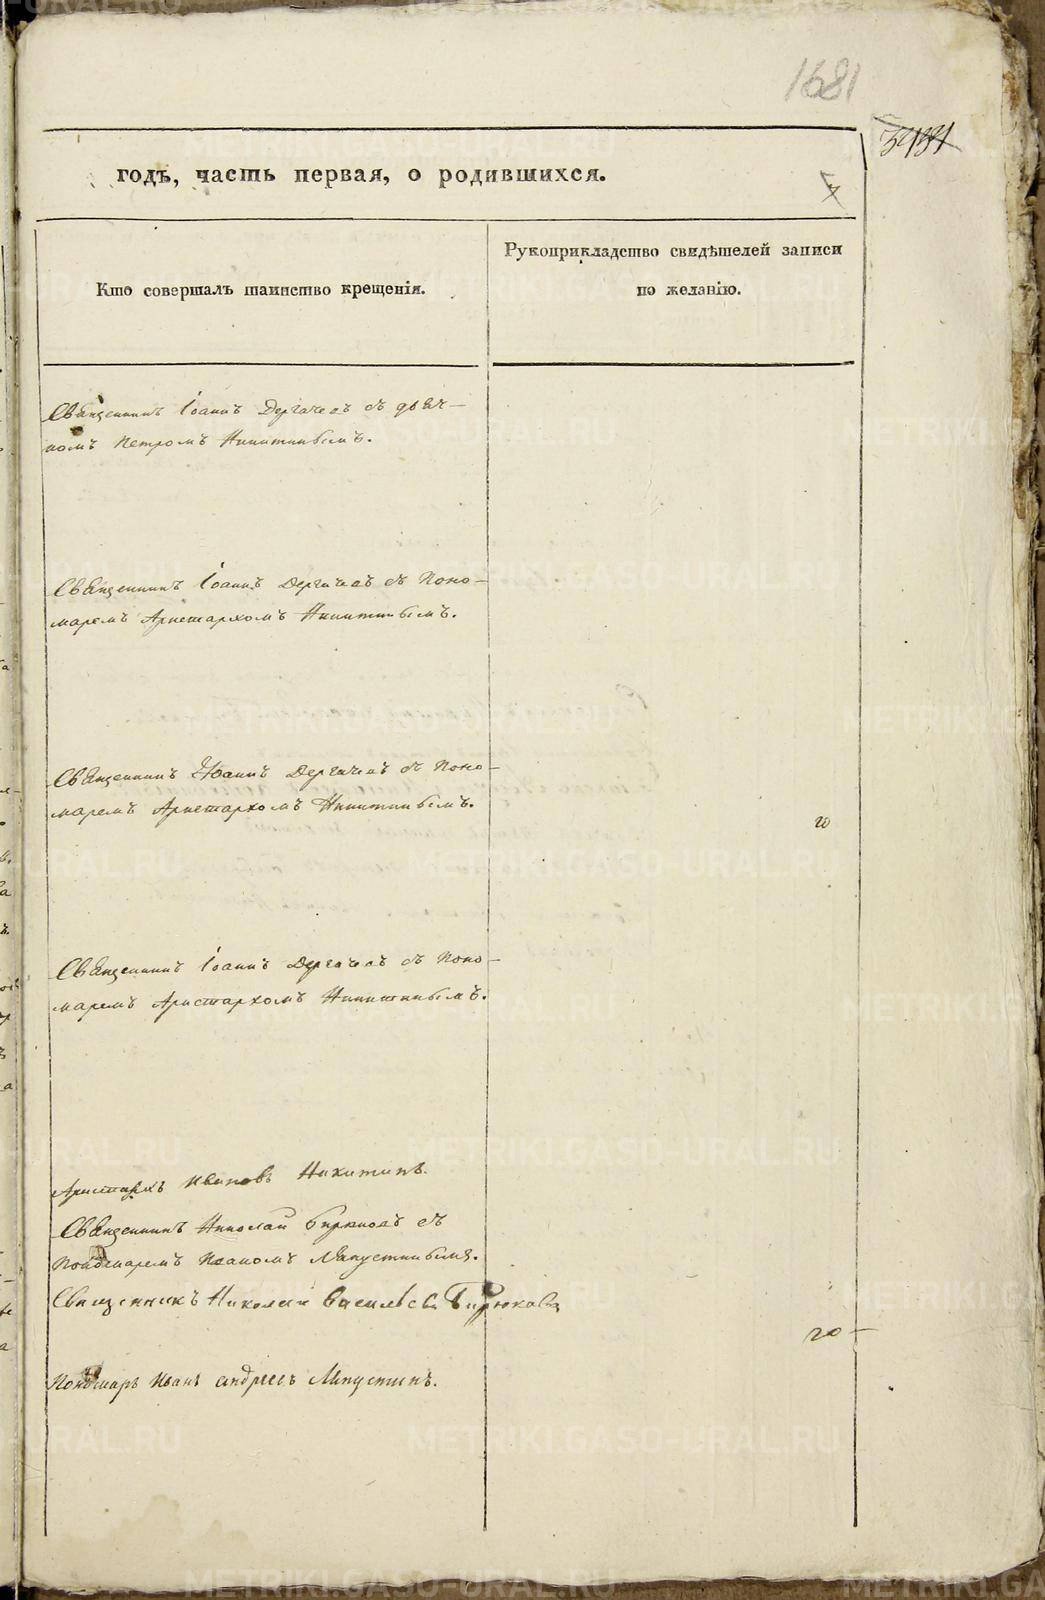 1681
годъ, часть первая, о родившихся.
Кто совершалъ таинство крещенія.
Рукоприкладство свидѣтелей записи
по желанію.
Священникъ Іоаннъ Дергачевъ съ дьяч-
комъ Петромъ Никитинымъ.
Священникъ Іоаннъ Дергачевъ съ Поно-
маремъ Аристархомъ Никитинымъ.
Священникъ Иоаннъ Дергачевъ съ Поно-
маремъ Аристархомъ Никитинымъ.
20
Священникъ Іоаннъ Дергачевъ съ Поно-
маремъ Аристархомъ Никитинымъ.
Аристархъ Ивановъ Никитинъ.
Священникъ Николай Бирюковъ съ
Пономаремъ Иваномъ Мапустинымъ.
Священникъ Николай Васильевъ Бирюковъ
20
Пономарь Иванъ Андреевъ Мапустинъ.
METRIKI.GASO-URAL.RU